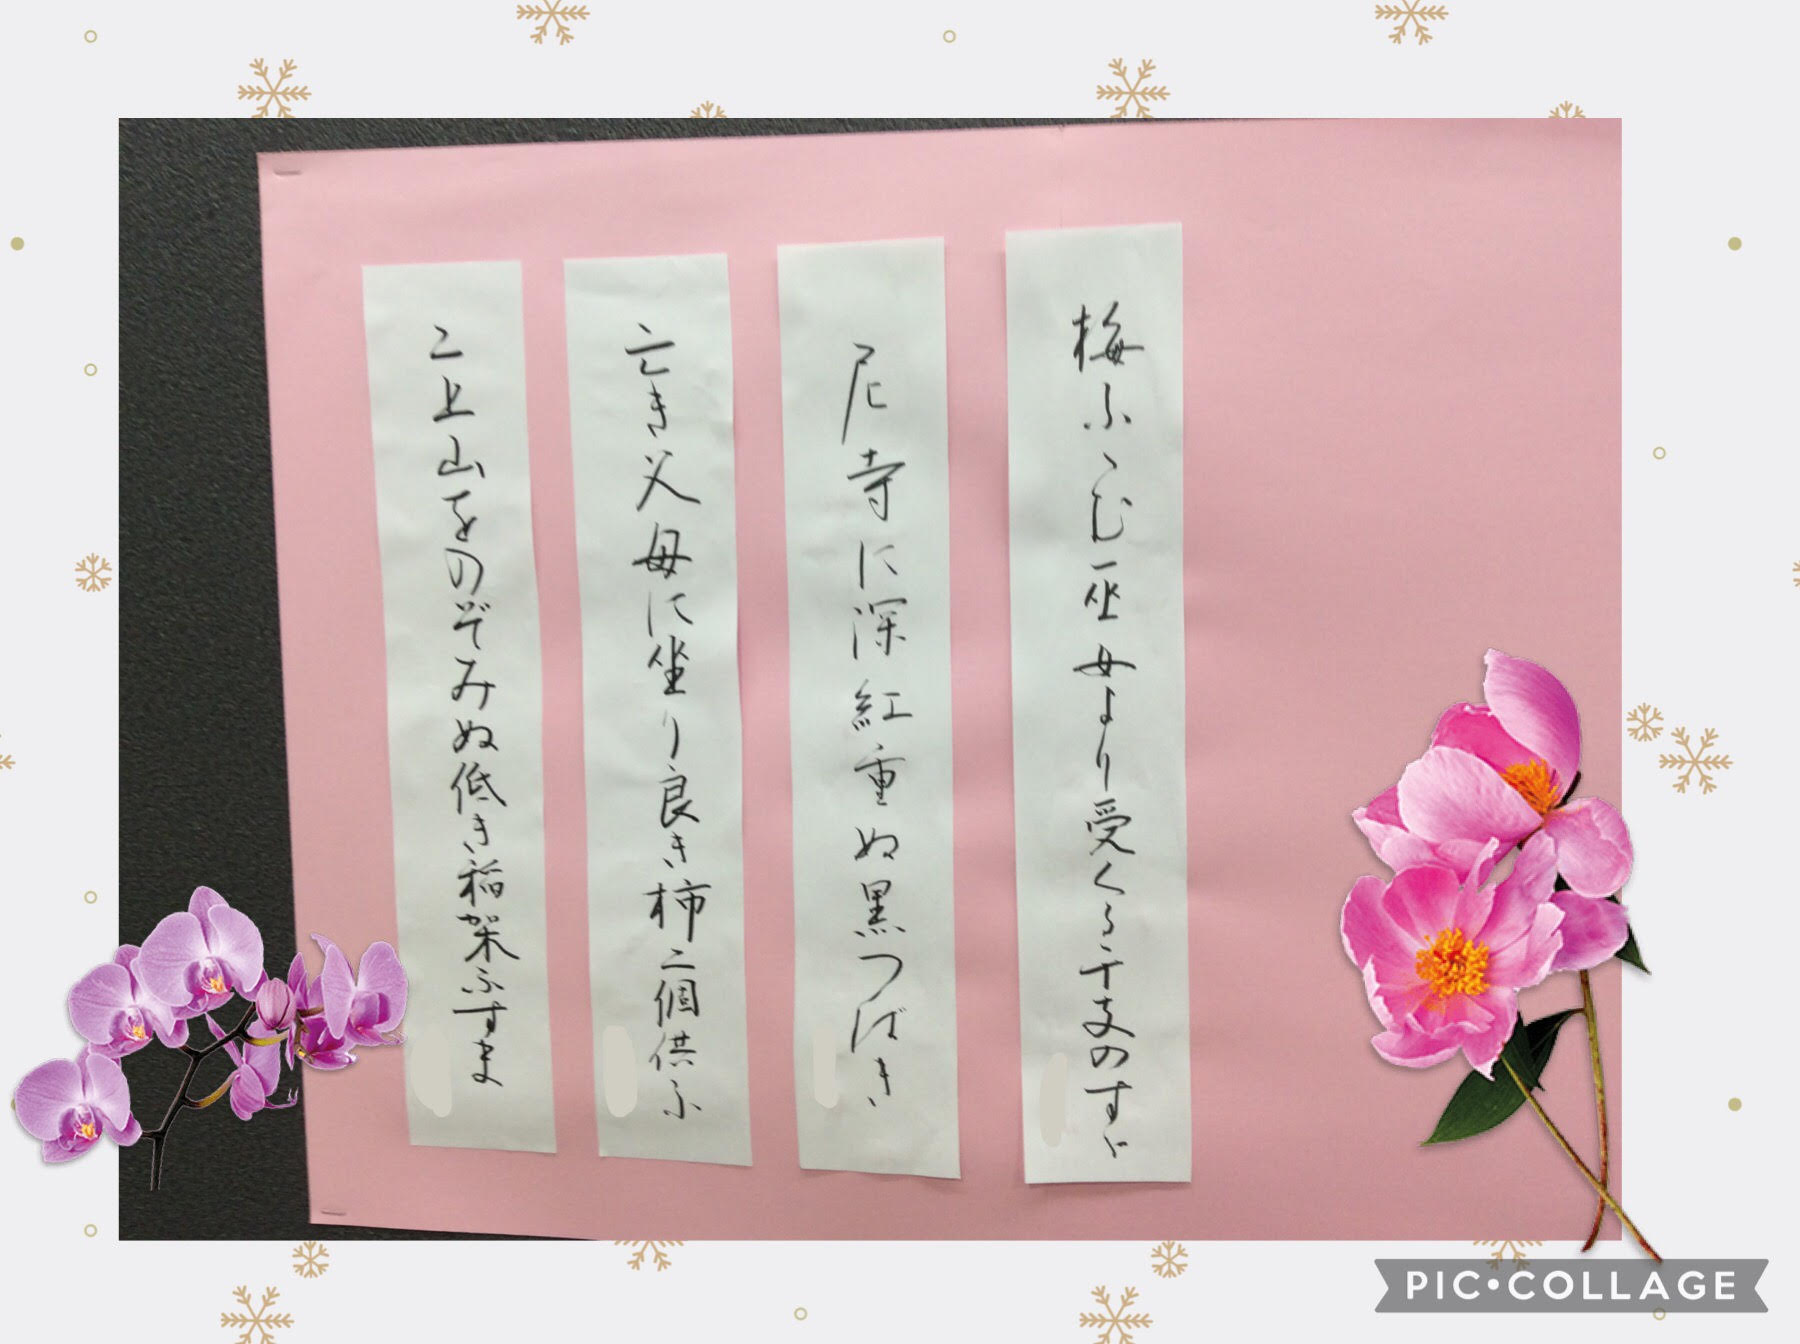 梅ふゝむ巫女より受くる干支のすゞ
尼寺に深紅重ぬ黒つばき
亡き父母に坐り良き柿二個供ふ
二上山をのぞみぬ低き稲架ふすま
PIC•COLLAGE